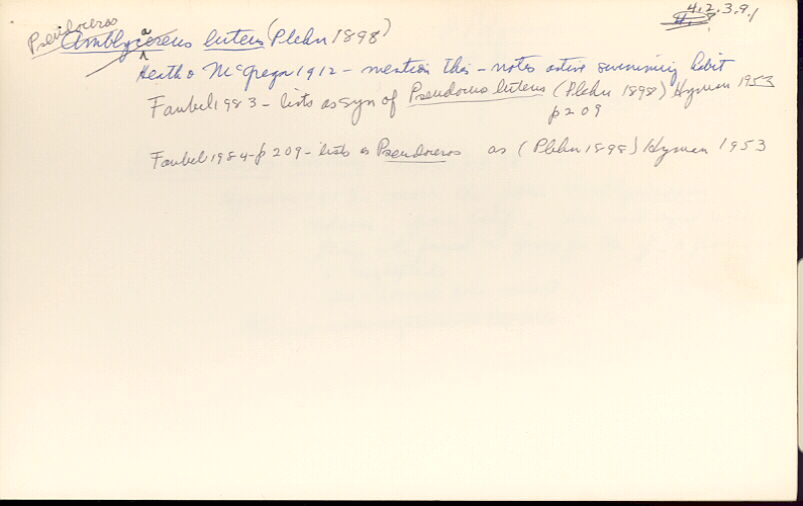 4.2.3.9.1
Pseudoceros
Amblycereus luteus (Plehn 1898)
a
Heath & McGregor 1912 - mention this - notes active swimming habit
Faubel 1983 - lists as syn of Pseudoceros luteus (Plehn 1898) Hyman 1953
p 209
Faubel 1984 - p 209 - lists as Pseudoceros as (Plehn 1898) Hyman 1953